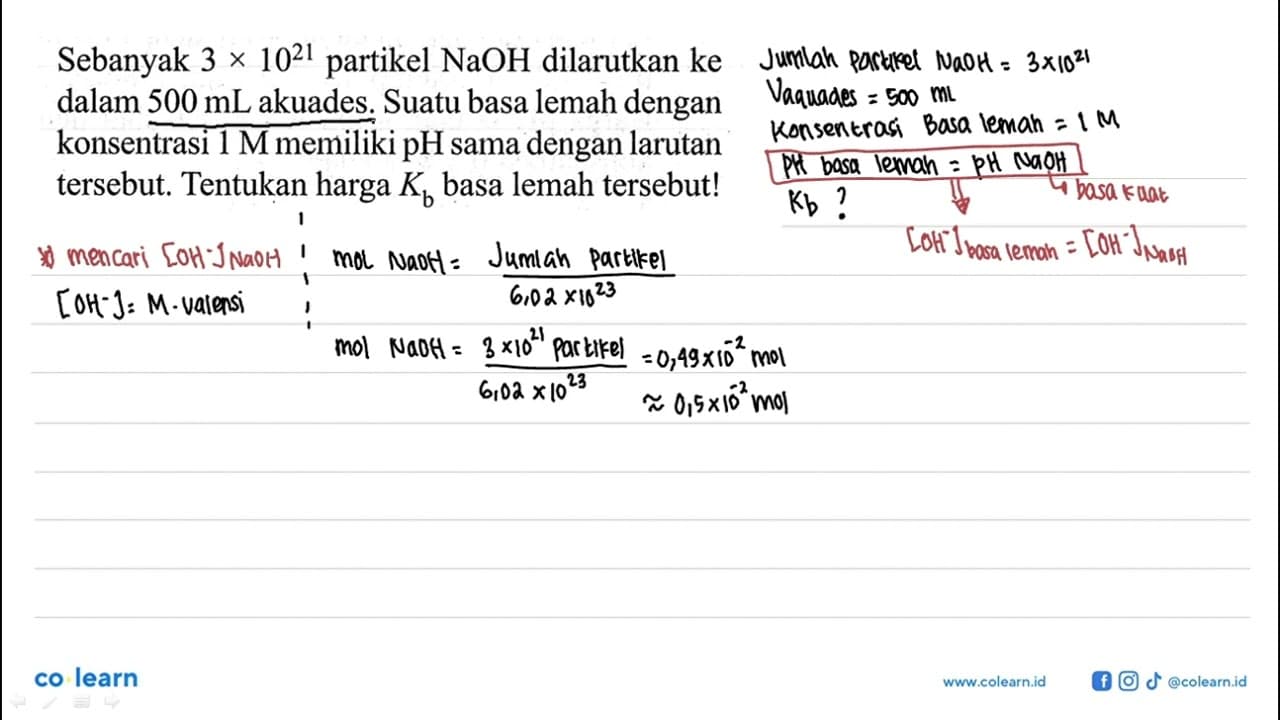 Sebanyak 3 × 10²¹ partikel NaOH dilarutkan ke
dalam 500 mL akuades. Suatu basa lemah dengan
konsentrasi 1 M memiliki pH sama dengan larutan
tersebut. Tentukan harga K_b basa lemah tersebut!
Jumlah partikel NaOH = 3×10²¹
Vaquades = 500 mL
Konsentrasi Basa lemah = 1 M
PH basa lemah = pH NaOH
↳ basa kuat
Kb ?
[OH⁻] basa lemah = [OH⁻] NaOH
* mencari [OH⁻] NaOH
[OH⁻] = M . valensi
mol NaOH = Jumlah Partikel
6,02 × 10²³
mol NaOH = 3 × 10²¹ Partikel = 0,49 × 10⁻² mol
6,02 × 10²³ ≈ 0,5 × 10⁻² mol
co learn
www.colearn.id
@colearn.id